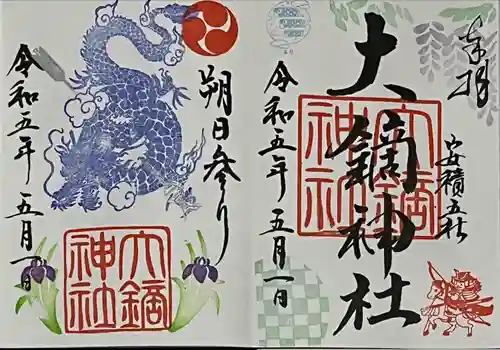 奉拝
安積五社
大鏑神社
大鏑神社
令和五年五月一日
朔日参り
大鏑神社
令和五年五月一日